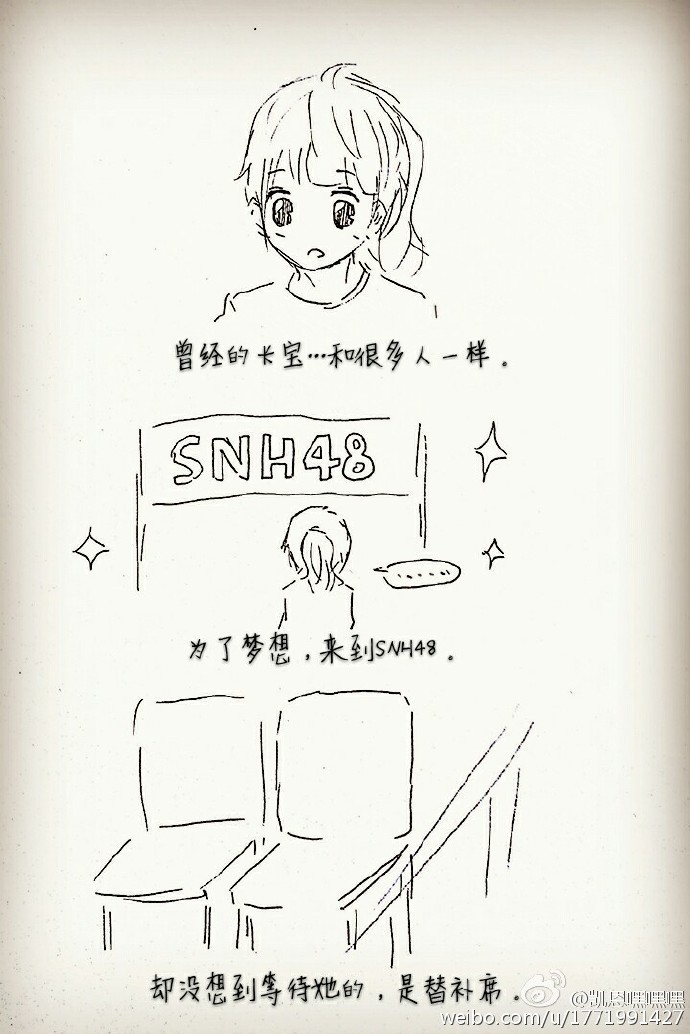 曾经的卡宝…和很多人一样。
SNH48
......
为了梦想，来到SNH48。
却没想到等待她的，是替补席。
@凯恩嘿嘿嘿
weibo.com/u/1771991427